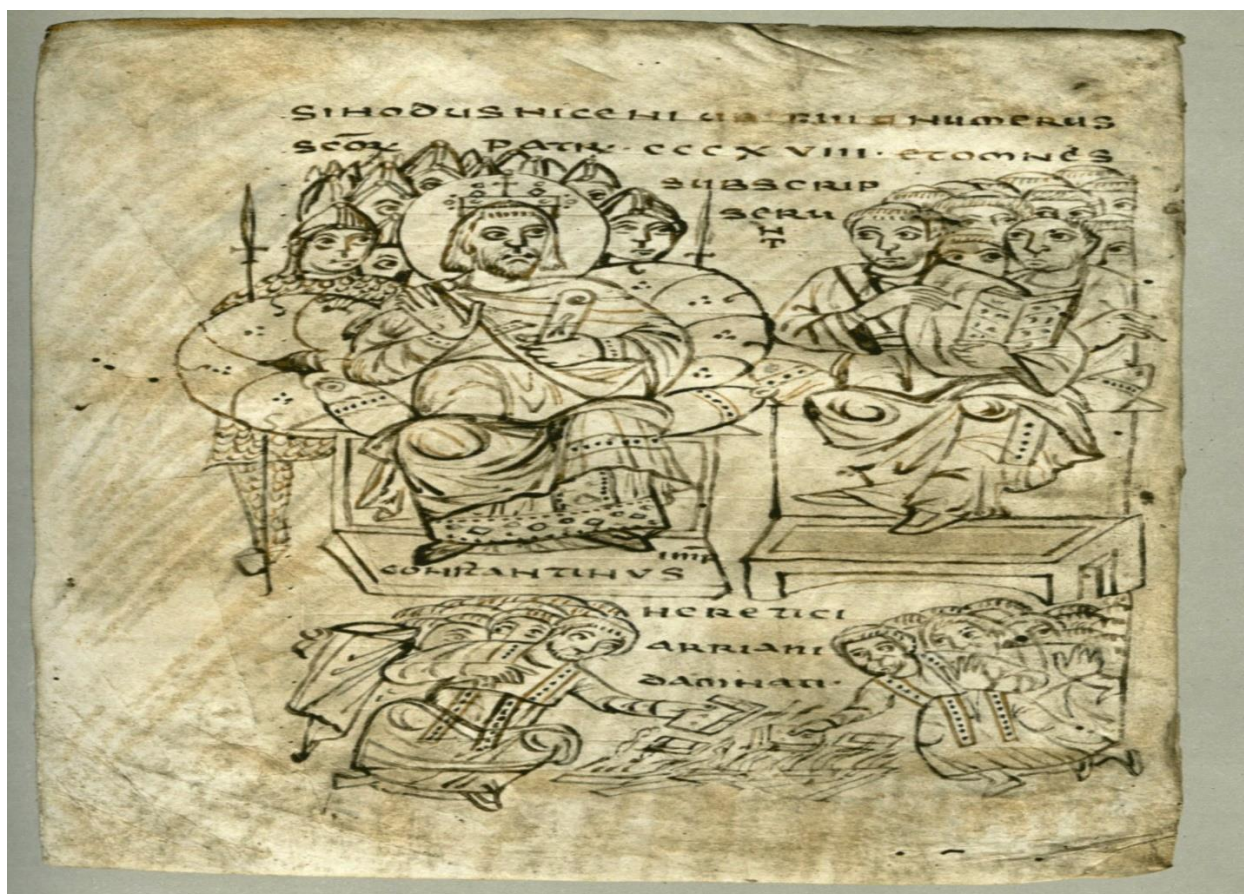 SINODUS NICENI NUMERUS
SCŌR· PATR· CCCXVIII· ETOMNES
SUBSCRIP
SERU
NT
IMP
CONSTANTINVS
HERETICI
ARRIANI
DAMNATI·